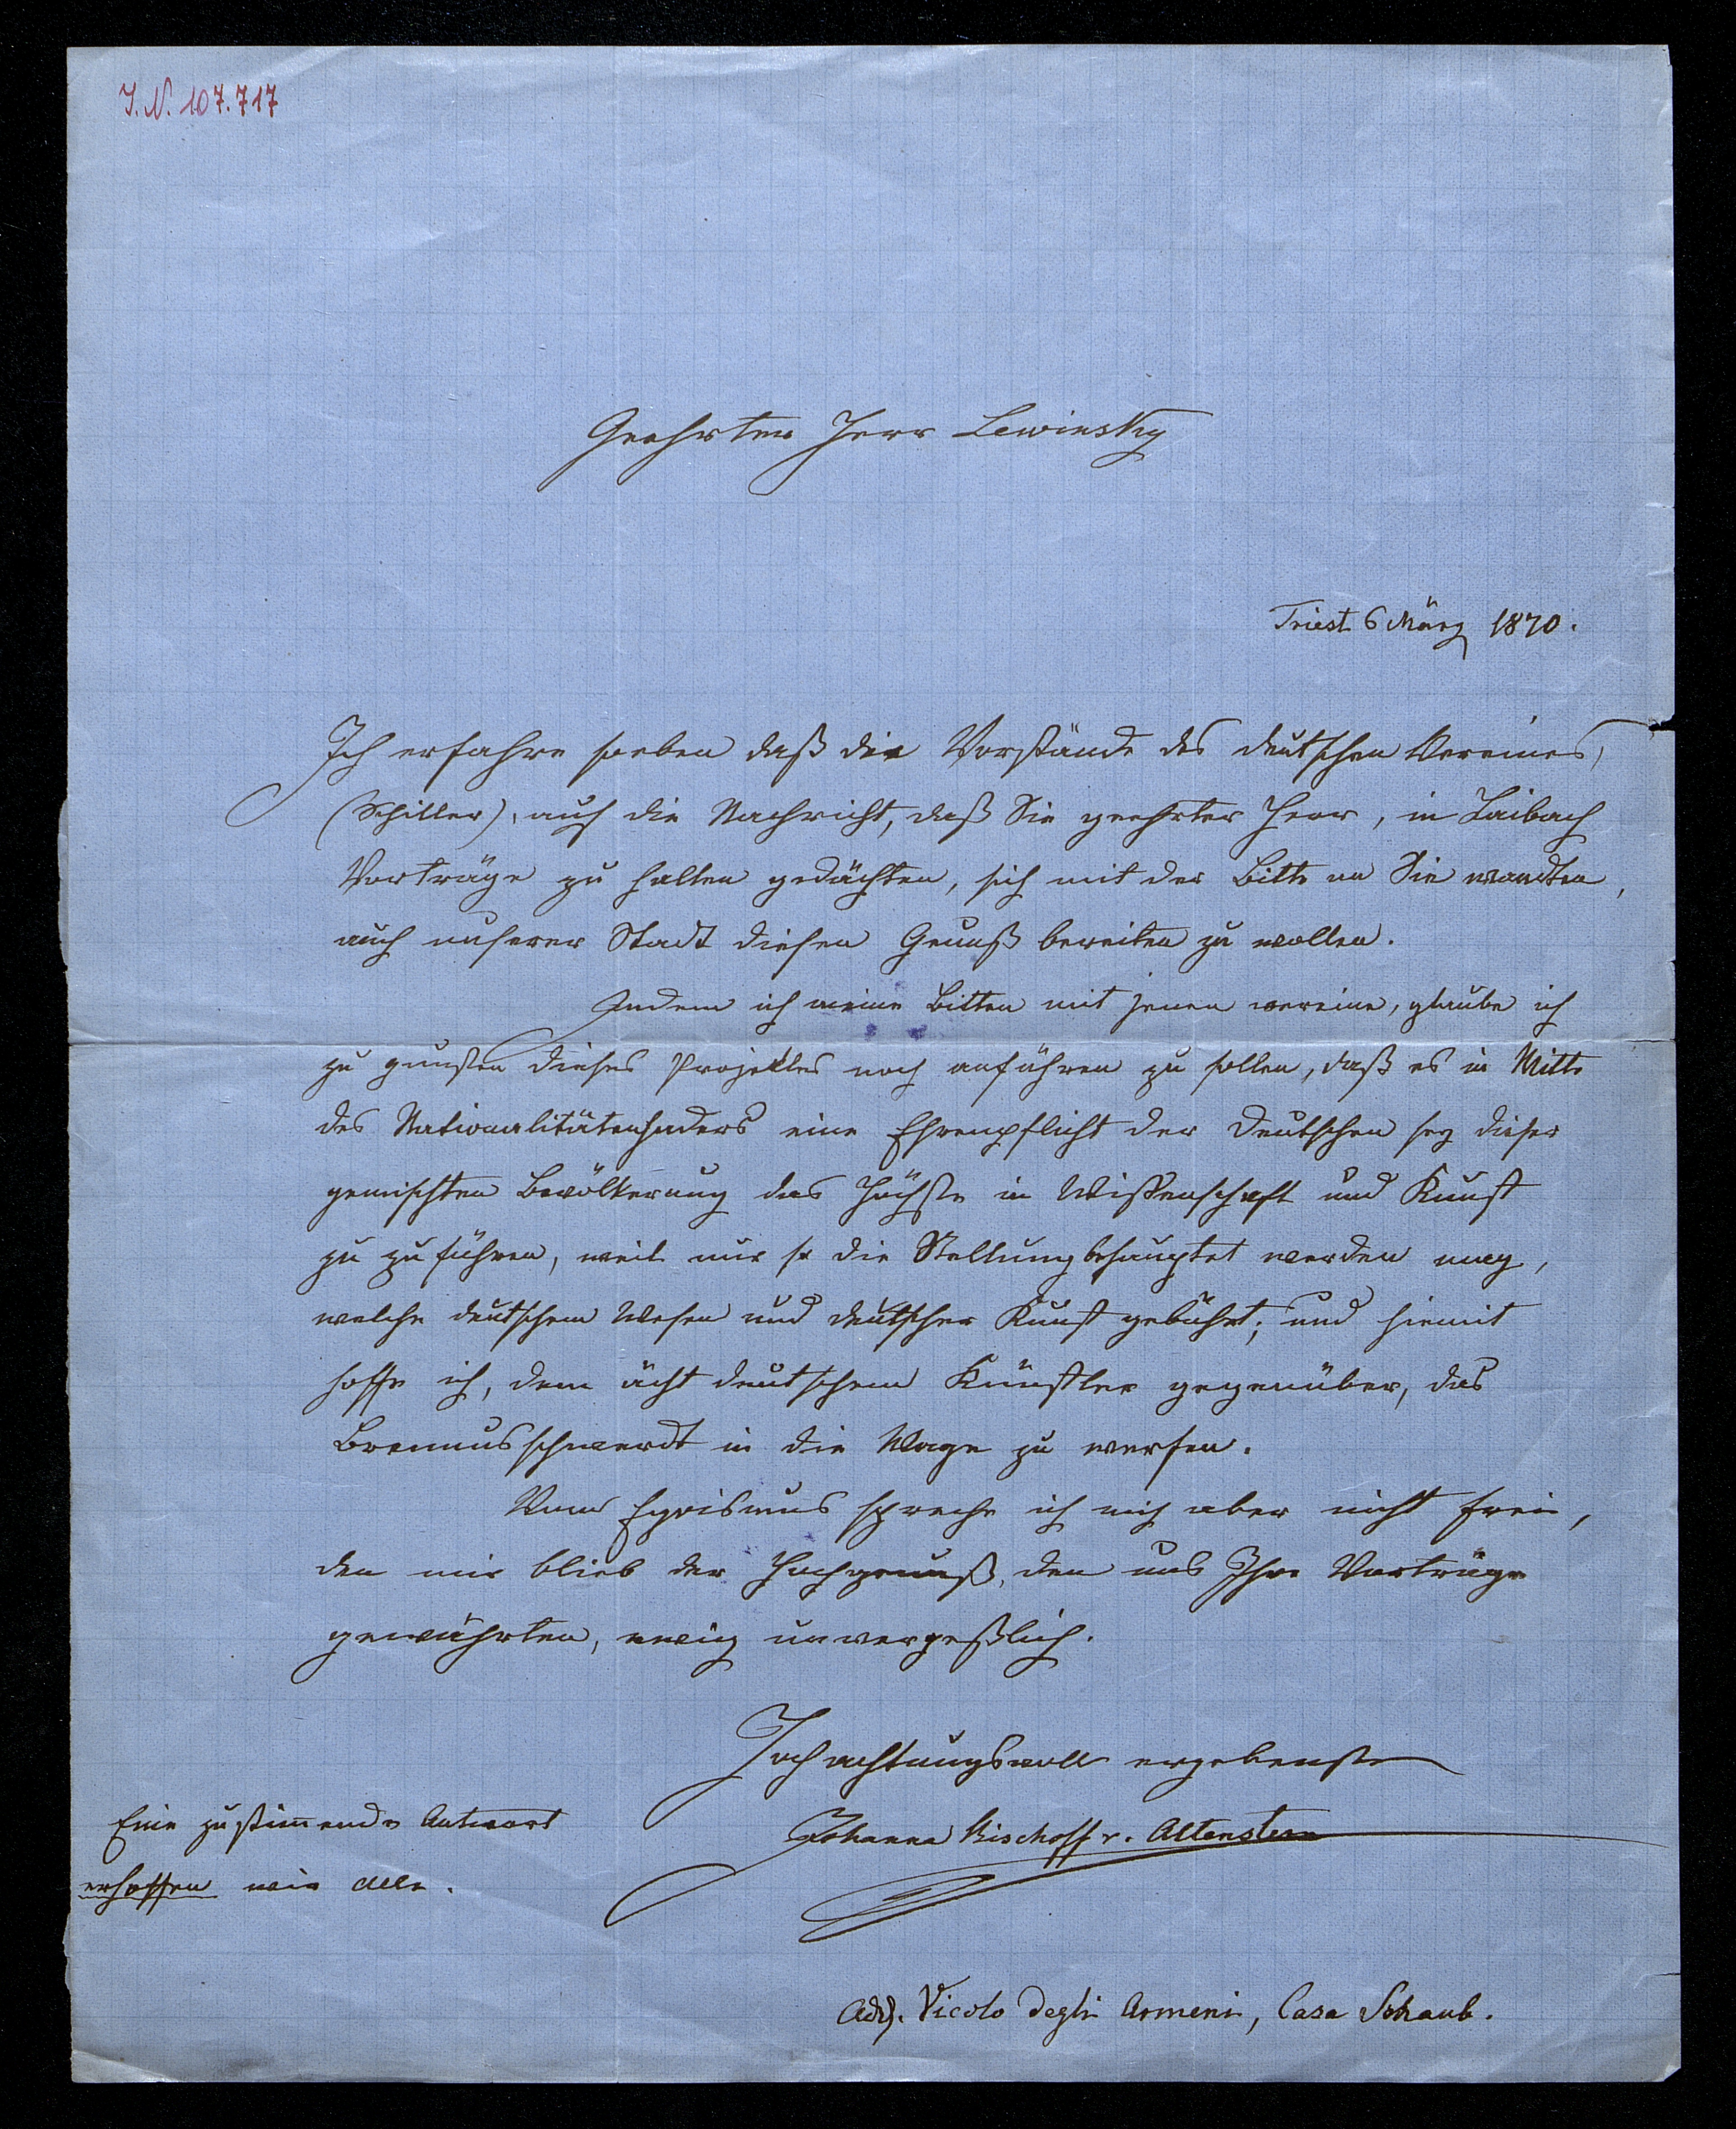 I.N. 107.717
Geehrter Herr Lewinsky
Triest 6 März 1870.
Ich erfahre soeben daß die Vorstände des deutschen Vereines,
(Schiller), auf die Nachricht, daß Sie geehrter Herr, in Laibach
Vorträge zu halten gedächten, sich mit der Bitte an Sie wandten,
auch unserer Stadt diesen Genuß bereiten zu wollen.
Indem ich meine Bitten mit jenen vereine, glaube ich
zu gunsten dieses Projektes noch anführen zu sollen, daß es in Mitte
des Nationalitätenhaders eine Ehrenpflicht der Deutschen sey dieser
gemischten Bevölkerung das Höchste in Wissenschaft und Kunst
zu zu führen, weil nur so die Stellung behauptet werden mag,
welche deutschem Wesen und deutscher Kunst gebührt; und hiemit
hoffe ich, dem ächt deutschem Künstler gegenüber, das
Brennusschwerdt in die Wage zu werfen.
Vom Egoismus spreche ich mich aber nicht frei,
den mir blieb der Hochgenuß, den uns Ihre Vorträge
gewährten, ewig unvergeßlich.
Hochachtungsvoll ergebenste
Johanna Bischoff v. Altenstern
Eine zustim̄ende Antwort
erhoffen wir Alle.
Adr. Vicolo degli Armeni, Casa Schaub.